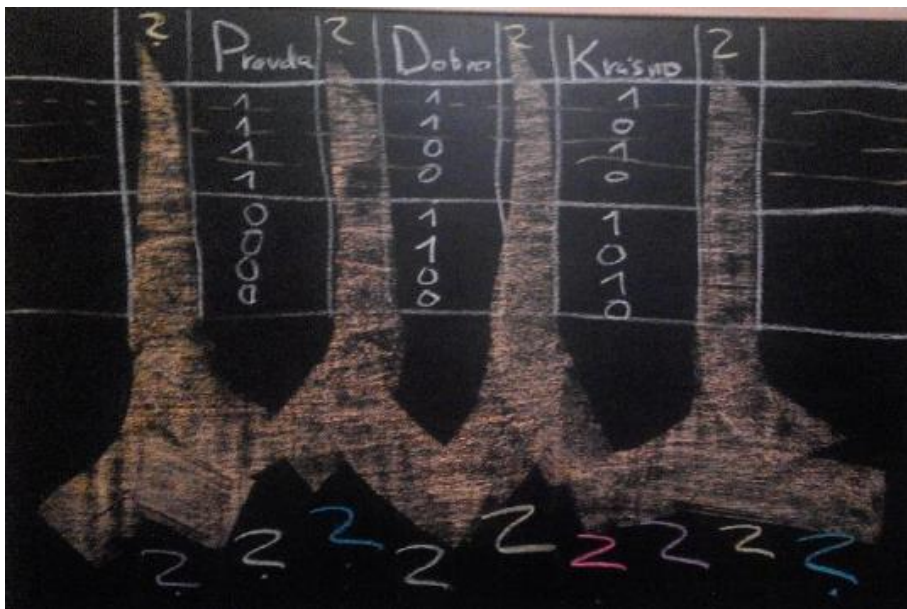 ? Pravda ? Dobro ? Krásno ?
1 1 1
1 1 0
1 0 1
1 0 0
0 1 1
0 1 0
0 0 1
0 0 0
? ? ? ? ? ? ? ? ?